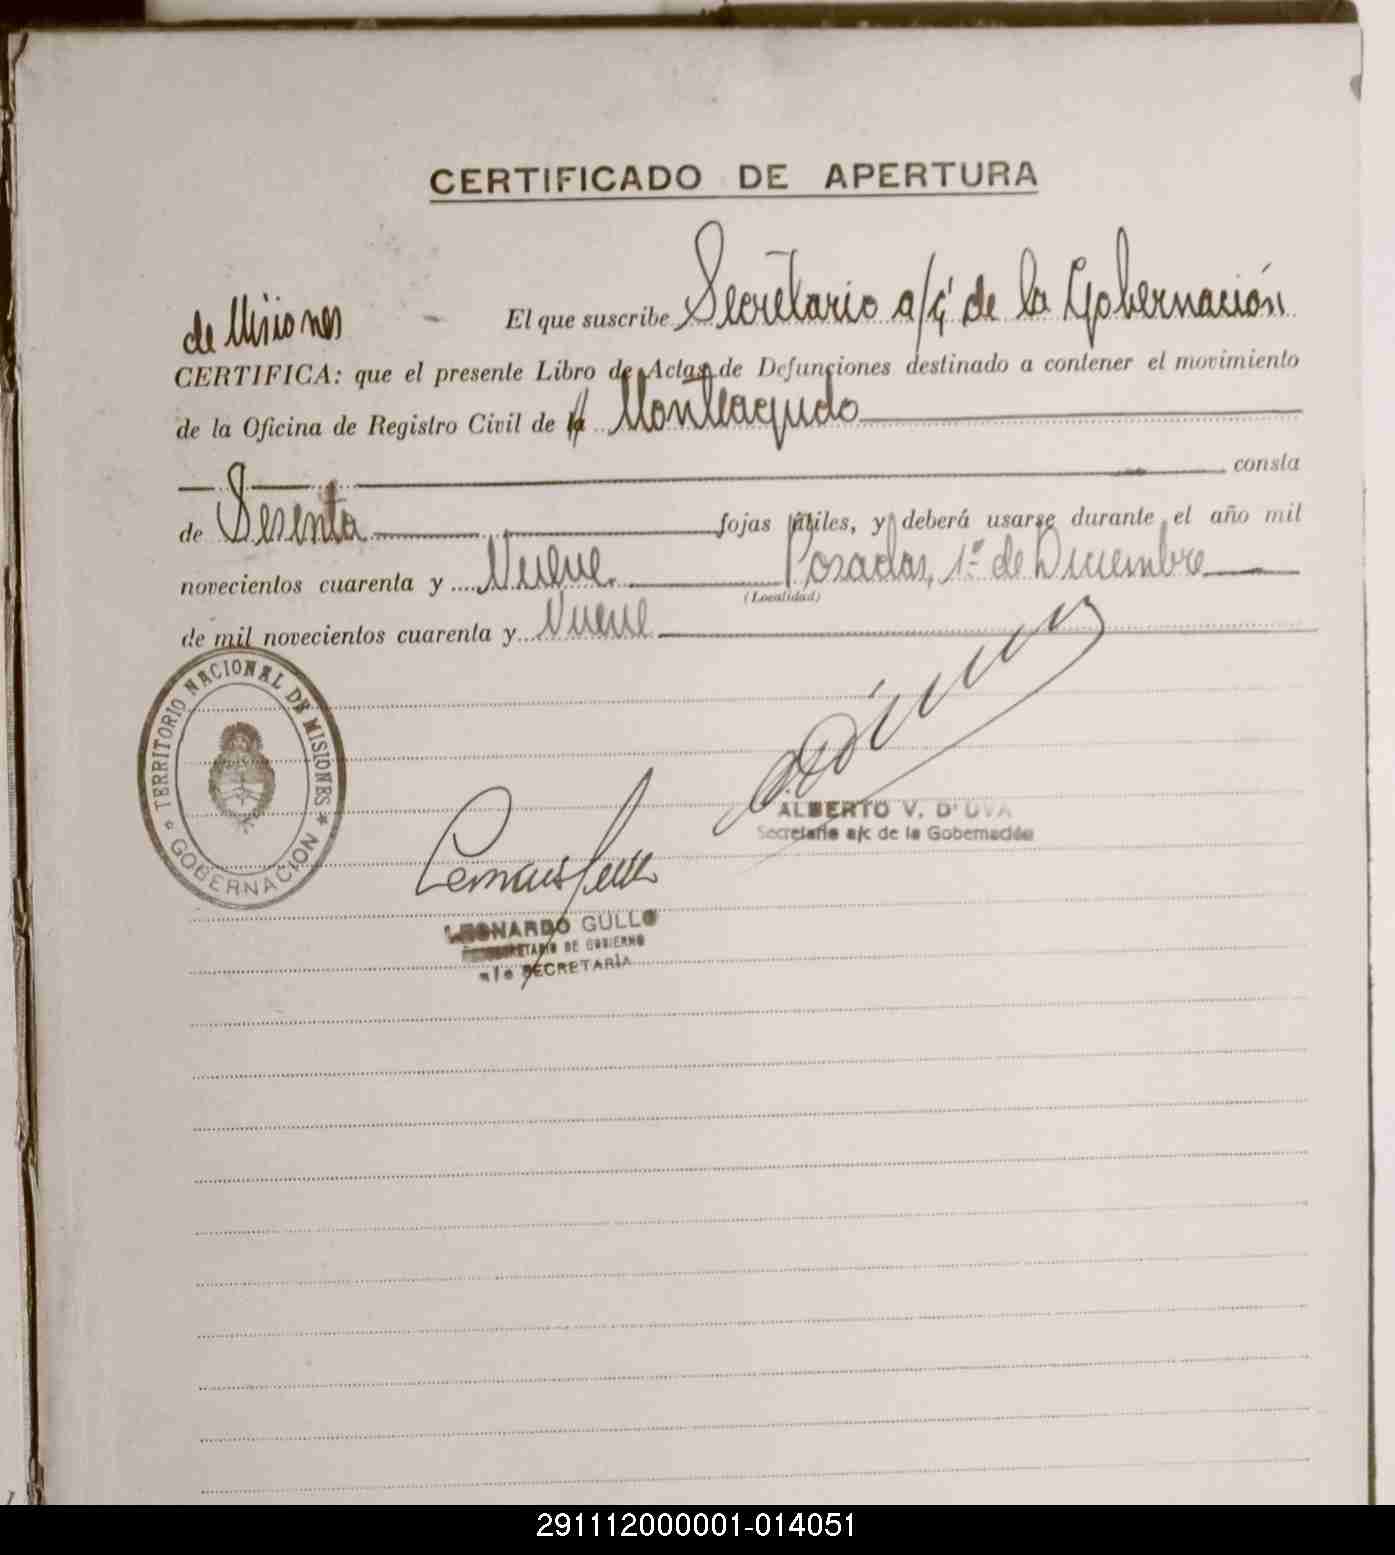 CERTIFICADO DE APERTURA
El que suscribe Secretario a/c de la Gobernación
de Misiones
CERTIFICA: que el presente Libro de Actas de Defunciones destinado a contener el movimiento
de la Oficina de Registro Civil de Monteagudo
consta
de Sesenta fojas útiles, y deberá usarse durante el año mil
novecientos cuarenta y Nueve. Posadas, 1º de Diciembre
(Localidad)
de mil novecientos cuarenta y Nueve
TERRITORIO NACIONAL DE MISIONES
* GOBERNACION *
ALBERTO V. D' UVA
Secretario a/c de la Gobernación
LEONARDO GULLO
SECRETARIO DE GOBIERNO
a/c SECRETARIA
291112000001-014051